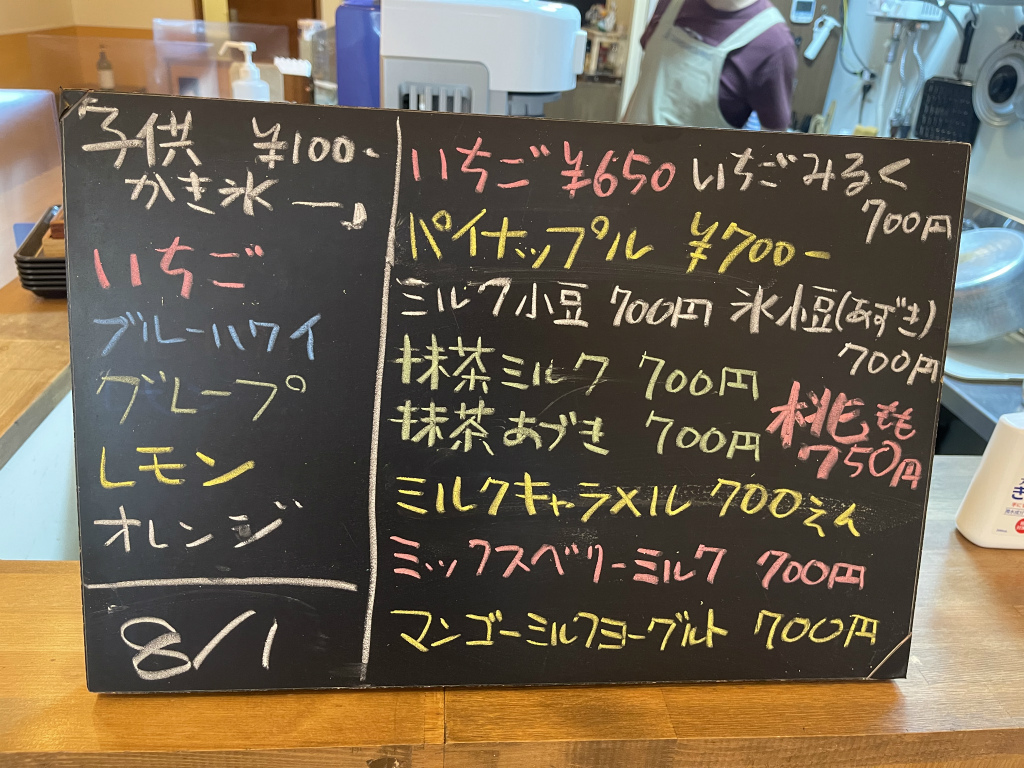 子供 ¥100-
かき氷 ー♪
いちご
ブルーハワイ
グレープ
レモン
オレンジ
8/1
いちご ¥650 いちごみるく
700円
パイナップル ¥700-
ミルク小豆 700円 氷小豆(あずき)
700円
抹茶ミルク 700円
抹茶あづき 700円
桃もも
750円
ミルクキャラメル 700えん
ミックスベリーミルク 700円
マンゴーミルクヨーグルト 700円